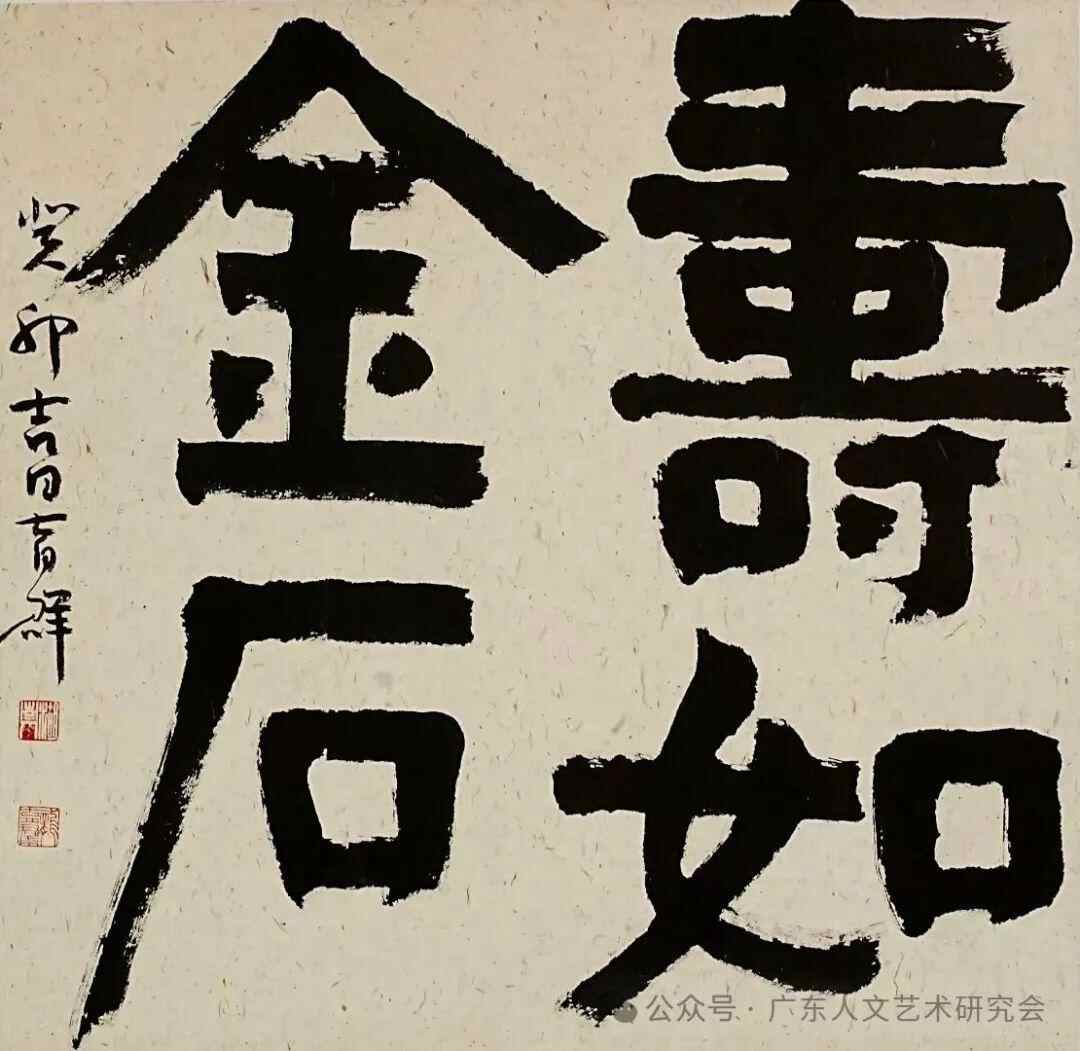 壽如
金石
癸卯吉日育祥
公众号·广东人文艺术研究会